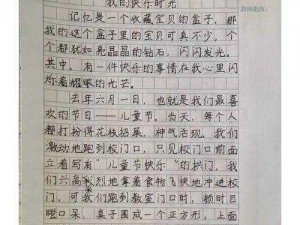 我的快乐时光
记忆是一个收藏宝贝的盒子，那
我的这个盒子里的宝贝可真不少，个
个都犹如亮晶晶的钻石，闪闪发光。
其中，有一件快乐的事情在我心里闪
烁着耀眼的光芒。
去年六月一日，也就是我们最喜
欢的节日——儿童节。当天，每个人
都打扮得花枝招展，神气活现。我们
激动地跑到校门口，只见校门口前面
立着写有“儿童节快乐”的拱门，我
们兴高彩烈地拿着食物飞快地冲进校
门，可我们跑到教室门口时，顿时目
瞪口呆，桌子围成一个正方形，上面